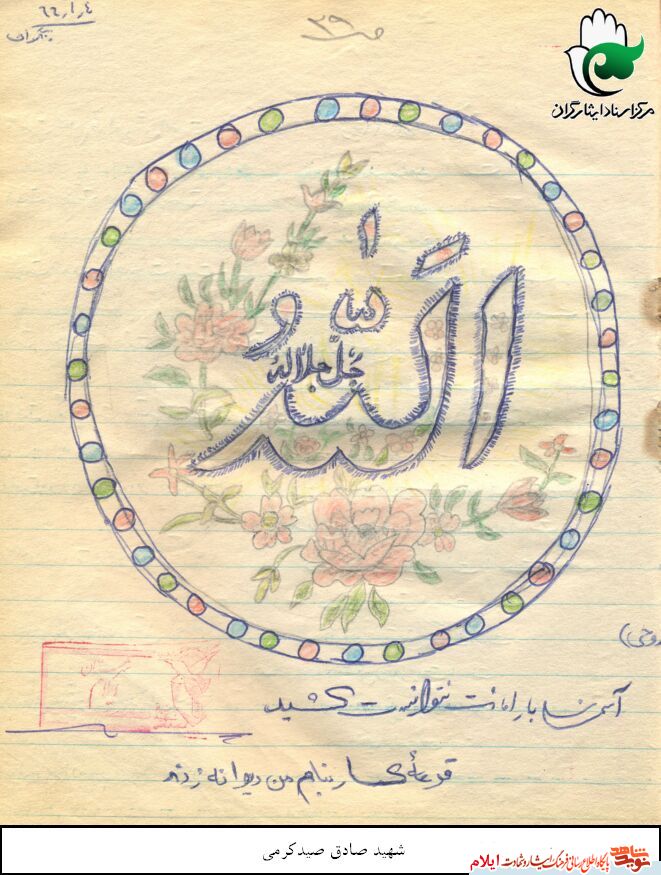 ۶۶٫۱٫۴
ص ۲۹
مرکز اسناد ایثارگران
الله
جل جلاله
آسمان بار امانت نتوانست کشید
قرعهٔ کار بنام من دیوانه زدند
شهید صادق صیدکرمی
نوید شاهد
پایگاه اطلاع رسانی فرهنگ ایثار و شهادت ایلام